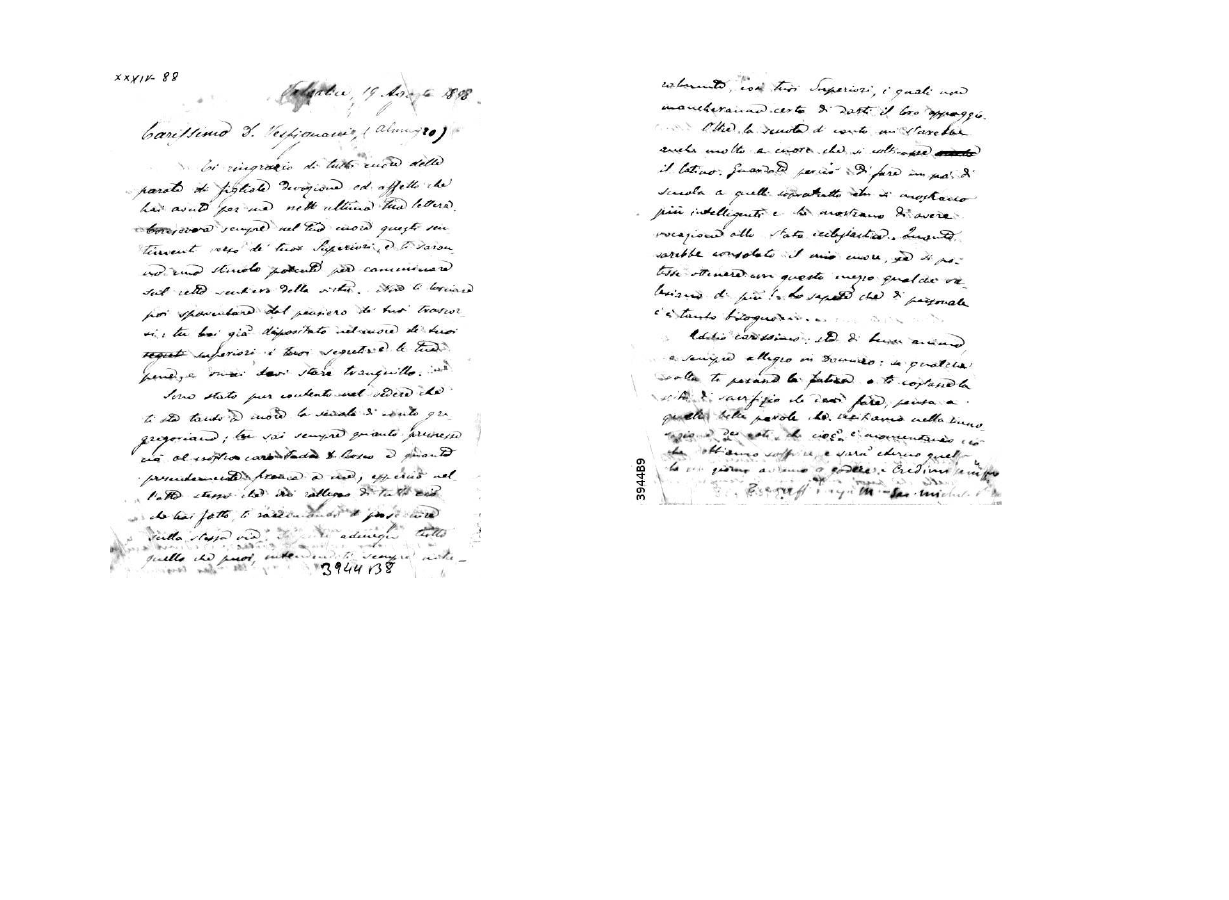 XXXIV- 88
Valsalice, 19 Agosto 1898.
Carissimo D. Vespignani, (Almagro)
Ti ringrazio di tutto cuore delle
parole di figliale devozione ed affetto che
hai avuto per me nell'ultima tua lettera.
Conserva sempre nel tuo cuore questi sen
timenti verso di tuoi Superiori, e ti saran
no uno stimolo potente per camminare
sul retto sentiero della virtù. Non ti lasciare
poi spaventare dal pensiero di tuoi trascor
si; tu hai già depositato nel cuore de tuoi
superiori i tuoi segreti e le tue
pene, e ormai devi stare tranquillo.
Sono stato pur contento nel vedere che
ti sta tanto a cuore la scuola di canto gre
gregoriano; tu sai sempre quanto premesse
ciò al nostro caro Don Bosco e quanto
presentemente prema a noi, epperciò nel
l'atto stesso che mi rallegro di tutto ciò
che hai fatto, ti raccomando di proseguire
sulla stessa via. adunque tutto
quello che puoi, intendendoti sempre
3944B8
coi tuoi Superiori, i quali non
mancheranno certo di darti il loro appoggio.
Oltre la scuola di canto mi starebbe
anche molto a cuore che si coltivasse
il latino. Guardate perciò di fare un po' di
scuola a quelli sopratutto che si mostrano
più intelligenti e che mostrano di avere
vocazione allo stato ecclesiastico. Quanto
sarebbe consolato il mio cuore, se si po-
tesse ottenere con questo mezzo qualche sa-
lesiano di più! Lo sapete che di personale
c'è tanto bisogno.
Addio carissimo: sta di buon animo,
e sempre allegro in Domino: se qualche
volta ti pesano la fatica o ti costasse la
vita di sacrifizio che devi fare, pensa a
quelle belle parole che recitiamo nella rinno
vazione dei voti, che cioè è momentaneo ciò
che abbiamo a soffrire, e sarà eterno quel
lo che un giorno avremo a godere. Credimi sempre
3944B9